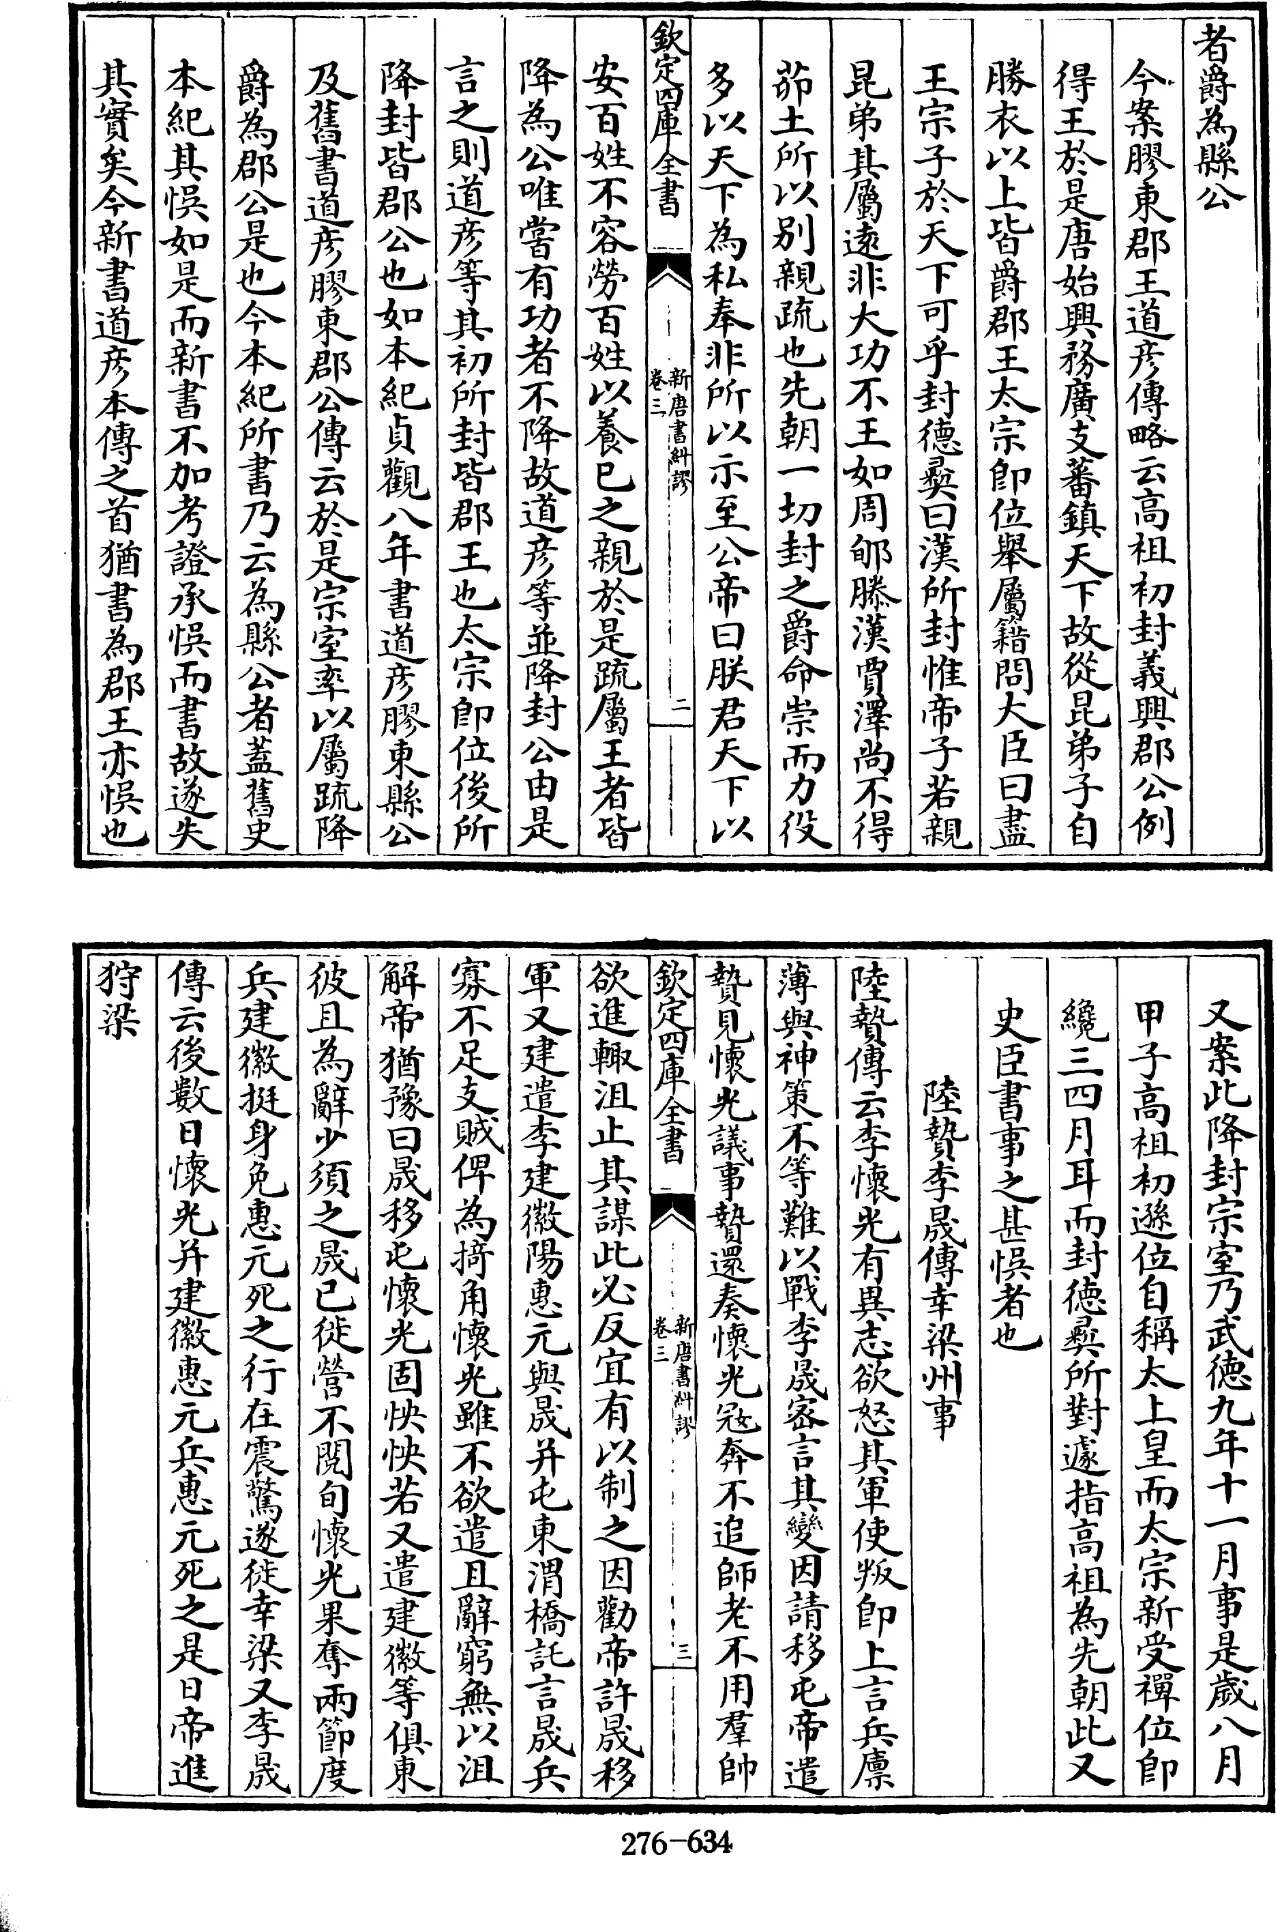 者爵為縣公
今案膠東郡王道彦傳略云高祖初封義興郡公例
得王於是唐始興務廣支蕃鎮天下故從昆弟子自
勝衣以上皆爵郡王太宗即位舉屬籍問大臣曰盡
王宗子於天下可乎封德彝曰漢所封惟帝子若親
昆弟其屬遠非大功不王如周郇滕漢賈澤尚不得
茆土所以别親疏也先朝一切封之爵命崇而力役
多以天下為私奉非所以示至公帝曰朕君天下以
欽定四庫全書
新唐書糾謬
卷三
二
安百姓不容勞百姓以養已之親於是疏屬王者皆
降為公唯嘗有功者不降故道彦等並降封公由是
言之則道彦等其初所封皆郡王也太宗即位後所
降封皆郡公也如本紀貞觀八年書道彦膠東縣公
及舊書道彦膠東郡公傳云於是宗室率以屬疏降
爵為郡公是也今本紀所書乃云為縣公者蓋舊史
本紀其悞如是而新書不加考證承悞而書故遂失
其實矣今新書道彦本傳之首猶書為郡王亦悞也
又案此降封宗室乃武徳九年十一月事是歲八月
甲子高祖初遜位自稱太上皇而太宗新受禪位即
纔三四月耳而封徳彝所對遽指高祖為先朝此又
史臣書事之甚悞者也
陸贄李晟傳幸梁州事
陸贄傳云李懷光有異志欲怒其軍使叛即上言兵廪
薄與神策不等難以戰李晟宻言其變因請移屯帝遣
贄見懐光議事贄還奏懐光冦奔不追師老不用羣帥
欽定四庫全書
新唐書糾謬
卷三
三
欲進輙沮止其謀此必反宜有以制之因勸帝許晟移
軍又建遣李建徽陽惠元與晟并屯東渭橋託言晟兵
寡不足支賊俾為掎角懐光雖不欲遣且辭窮無以沮
解帝猶豫曰晟移屯懐光固怏怏若又遣建徽等俱東
彼且為辭少須之晟已徙營不閱旬懐光果奪兩節度
兵建徽挺身免惠元死之行在震驚遂徙幸梁又李晟
傳云後數日懐光并建徽惠元兵惠元死之是日帝進
狩梁
276-634